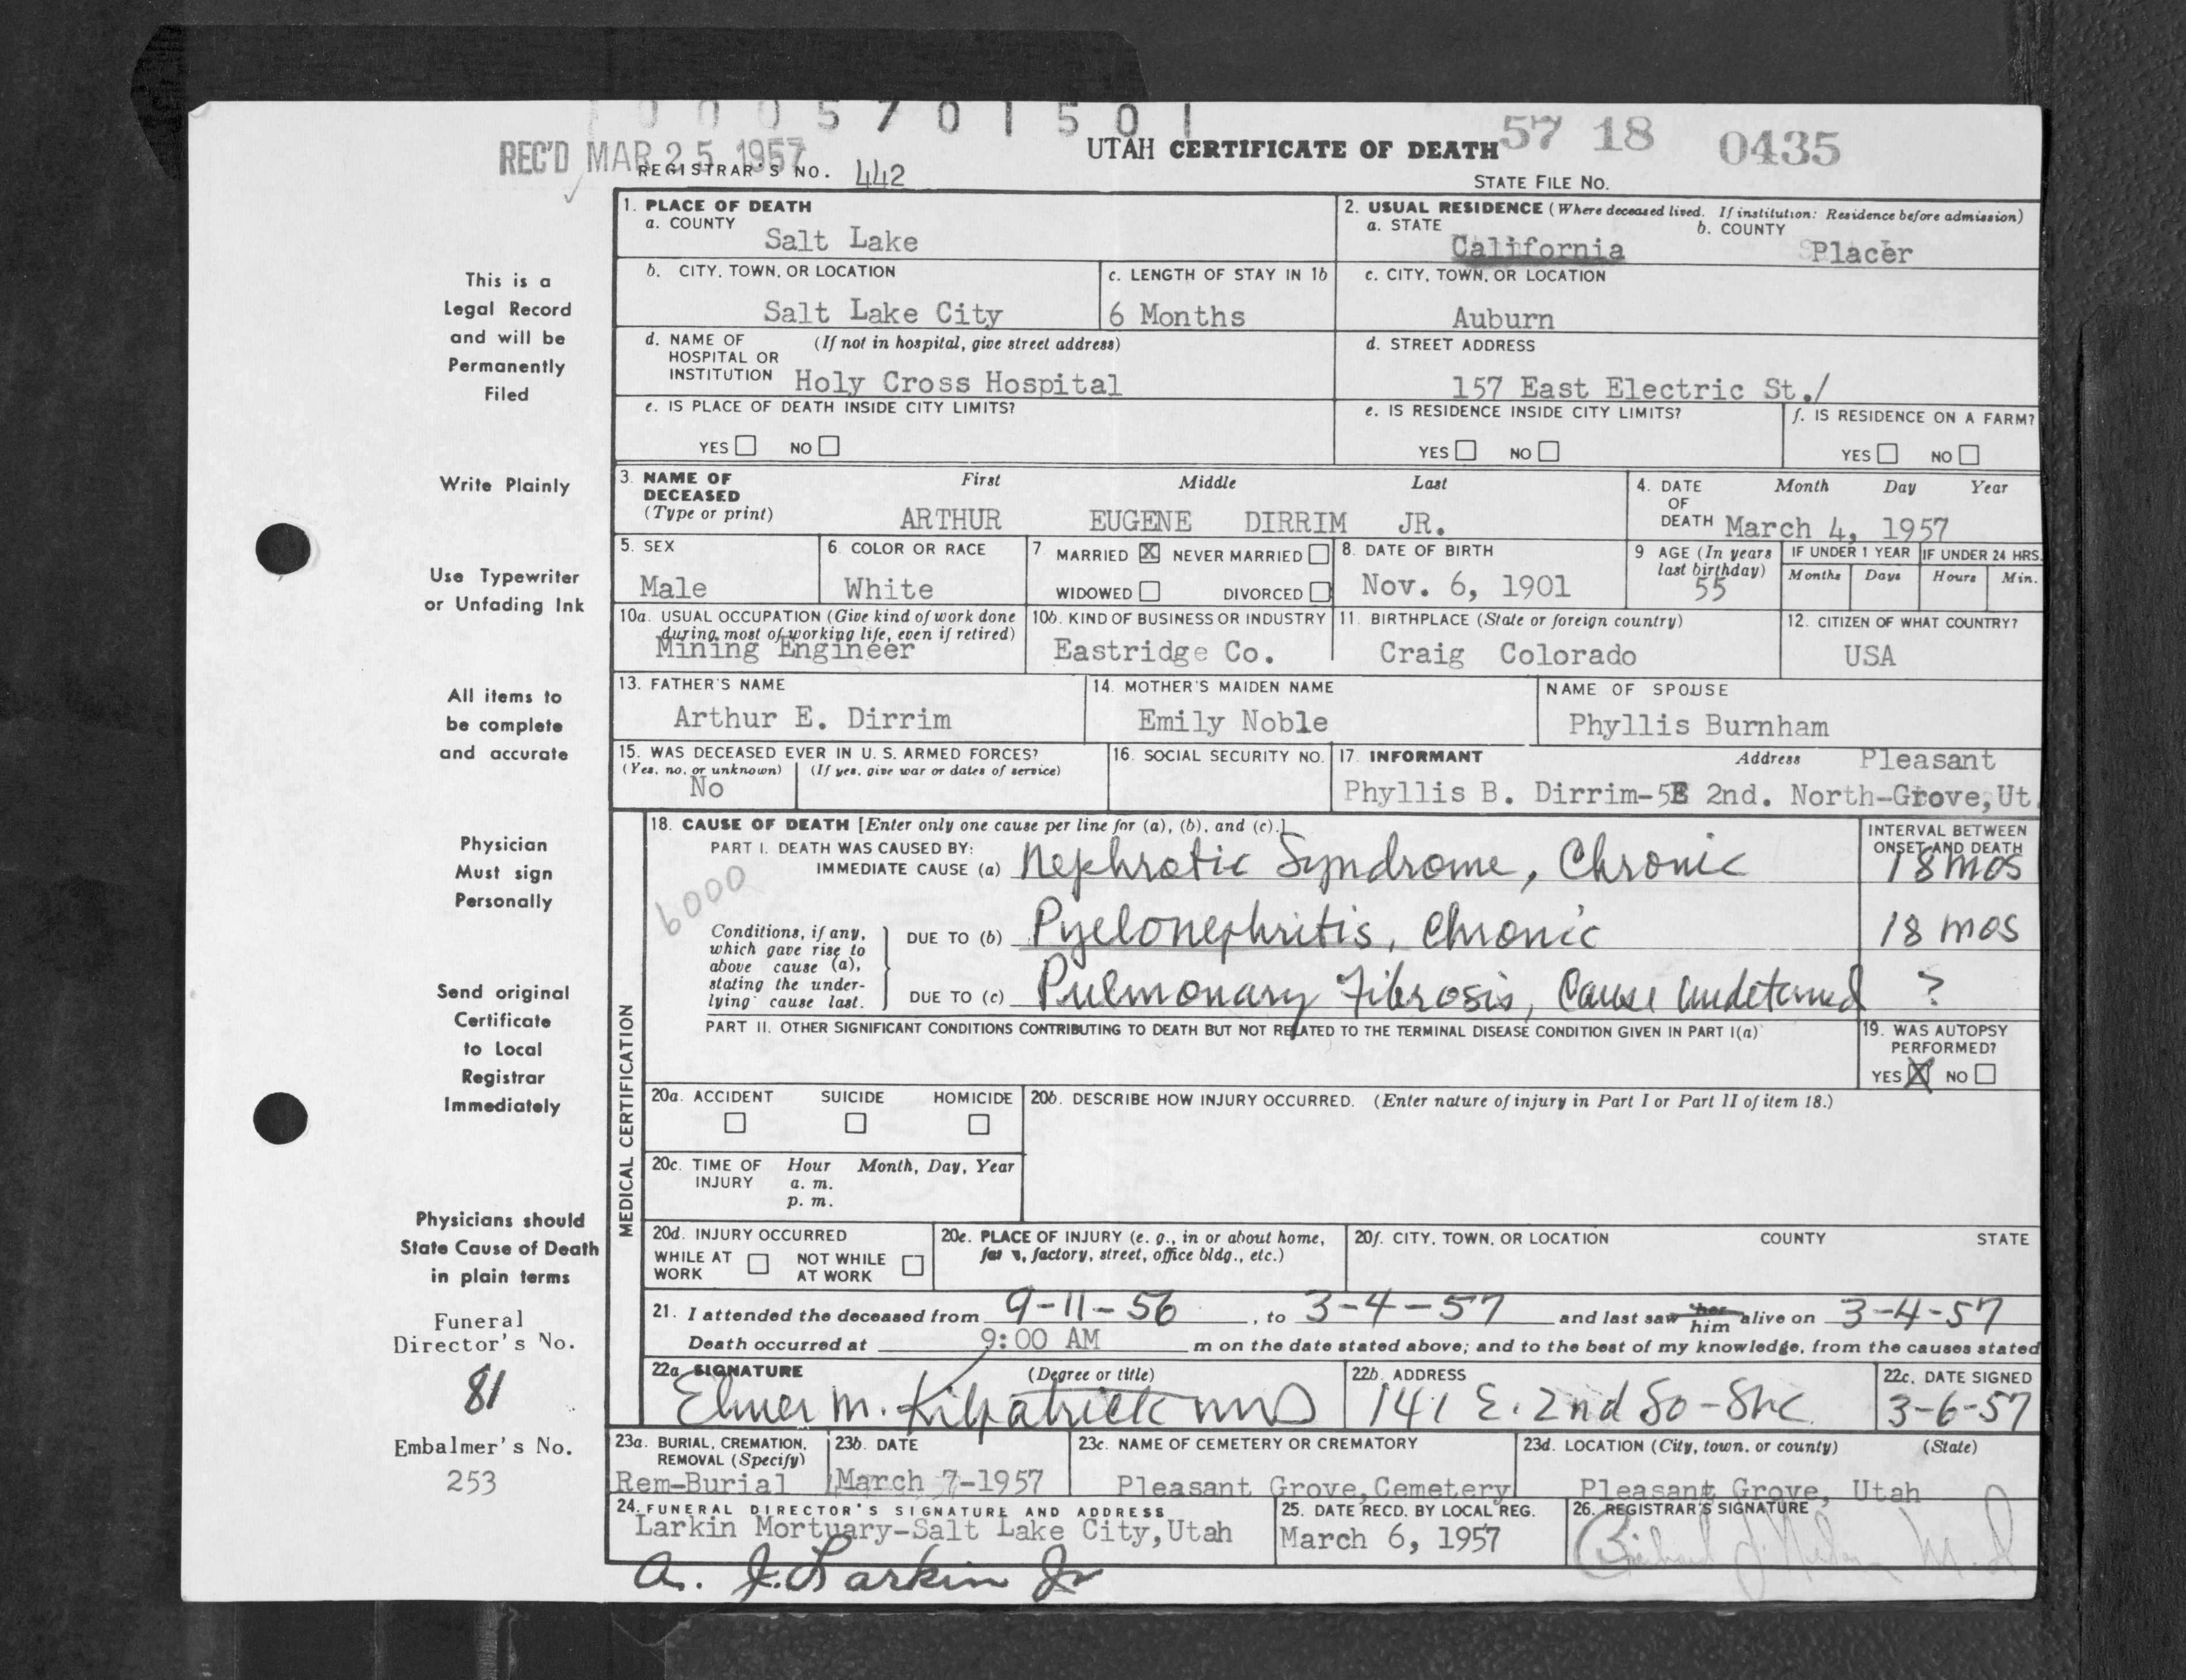 0 0 0 5 7 0 1 5 0 1
REC'D MAR 25 1957
REGISTRAR'S NO. 442
UTAH CERTIFICATE OF DEATH 57 18 0435
STATE FILE NO.
This is a
Legal Record
and will be
Permanently
Filed
Write Plainly
Use Typewriter
or Unfading Ink
All items to
be complete
and accurate
Physician
Must sign
Personally
Send original
Certificate
to Local
Registrar
Immediately
Physicians should
State Cause of Death
in plain terms
Funeral
Director's No.
81
Embalmer's No.
253
1. PLACE OF DEATH
a. COUNTY
Salt Lake
2. USUAL RESIDENCE (Where deceased lived. If institution: Residence before admission)
a. STATE California b. COUNTY Placer
b. CITY, TOWN, OR LOCATION
Salt Lake City
c. LENGTH OF STAY IN 1b
6 Months
c. CITY, TOWN, OR LOCATION
Auburn
d. NAME OF (If not in hospital, give street address)
HOSPITAL OR
INSTITUTION Holy Cross Hospital
d. STREET ADDRESS
157 East Electric St./
e. IS PLACE OF DEATH INSIDE CITY LIMITS?
YES NO
e. IS RESIDENCE INSIDE CITY LIMITS?
YES NO
f. IS RESIDENCE ON A FARM?
YES NO
3. NAME OF DECEASED (Type or print)
First Middle Last
ARTHUR EUGENE DIRRIM JR.
4. DATE OF DEATH Month Day Year
March 4, 1957
5. SEX
Male
6. COLOR OR RACE
White
7. MARRIED X NEVER MARRIED
WIDOWED DIVORCED
8. DATE OF BIRTH
Nov. 6, 1901
9 AGE (In years last birthday)
55
IF UNDER 1 YEAR IF UNDER 24 HRS.
Months Days Hours Min.
10a. USUAL OCCUPATION (Give kind of work done
during most of working life, even if retired)
Mining Engineer
10b. KIND OF BUSINESS OR INDUSTRY
Eastridge Co.
11. BIRTHPLACE (State or foreign country)
Craig Colorado
12. CITIZEN OF WHAT COUNTRY?
USA
13. FATHER'S NAME
Arthur E. Dirrim
14. MOTHER'S MAIDEN NAME
Emily Noble
NAME OF SPOUSE
Phyllis Burnham
15. WAS DECEASED EVER IN U. S. ARMED FORCES?
(Yes, no, or unknown) (If yes, give war or dates of service)
No
16. SOCIAL SECURITY NO.
17. INFORMANT Address Pleasant
Phyllis B. Dirrim-5E 2nd. North-Grove, Ut.
MEDICAL CERTIFICATION
18. CAUSE OF DEATH [Enter only one cause per line for (a), (b), and (c).]
INTERVAL BETWEEN
ONSET AND DEATH
6000
PART I. DEATH WAS CAUSED BY:
IMMEDIATE CAUSE (a) Nephrotic Syndrome, Chronic 18 mos
Conditions, if any,
which gave rise to
above cause (a),
stating the under-
lying cause last.
DUE TO (b) Pyelonephritis, Chronic 18 mos
DUE TO (c) Pulmonary Fibrosis, Cause ?
PART II. OTHER SIGNIFICANT CONDITIONS CONTRIBUTING TO DEATH BUT NOT RELATED TO THE TERMINAL DISEASE CONDITION GIVEN IN PART I(a)
19. WAS AUTOPSY
PERFORMED?
YES X NO
20a. ACCIDENT SUICIDE HOMICIDE
20b. DESCRIBE HOW INJURY OCCURRED. (Enter nature of injury in Part I or Part II of item 18.)
20c. TIME OF INJURY Hour Month, Day, Year
a. m.
p. m.
20d. INJURY OCCURRED
WHILE AT WORK NOT WHILE AT WORK
20e. PLACE OF INJURY (e. g., in or about home,
factory, street, office bldg., etc.)
20f. CITY, TOWN, OR LOCATION COUNTY STATE
21. I attended the deceased from 9-11-56, to 3-4-57 and last saw her him alive on 3-4-57
Death occurred at 9:00 AM m on the date stated above; and to the best of my knowledge, from the causes stated
22a. SIGNATURE (Degree or title)
Elmer M. Kilpatrick MD
22b. ADDRESS
141 E. 2nd So - SLC
22c. DATE SIGNED
3-6-57
23a. BURIAL, CREMATION,
REMOVAL (Specify)
Rem-Burial
23b. DATE
March 7-1957
23c. NAME OF CEMETERY OR CREMATORY
Pleasant Grove, Cemetery
23d. LOCATION (City, town, or county) (State)
Pleasant Grove, Utah
24. FUNERAL DIRECTOR'S SIGNATURE AND ADDRESS
Larkin Mortuary-Salt Lake City, Utah
A. J. Larkin Jr
25. DATE RECD. BY LOCAL REG.
March 6, 1957
26. REGISTRAR'S SIGNATURE